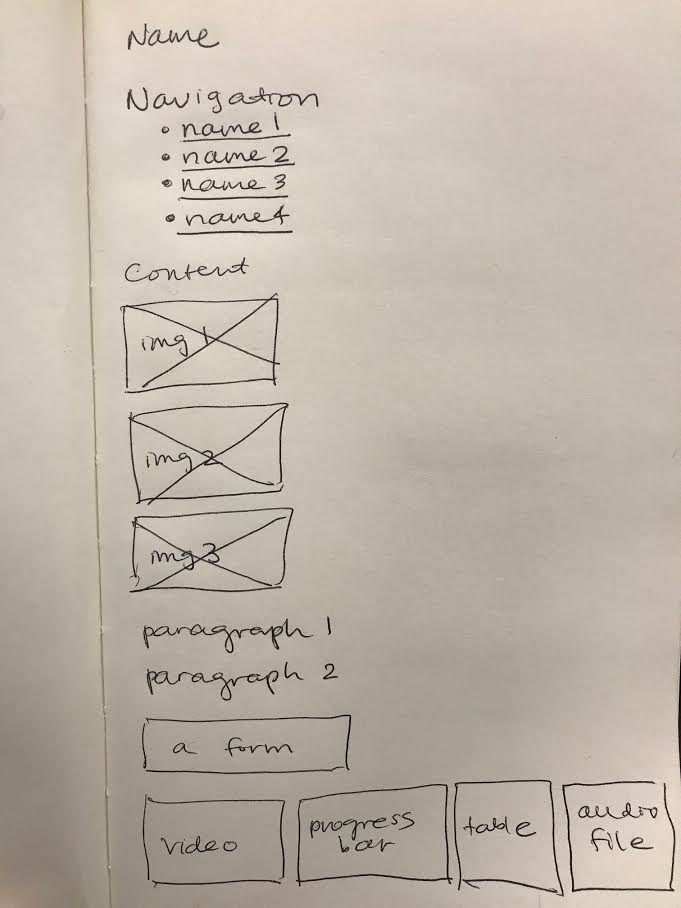 Name
Navigation
• name 1
• name 2
• name 3
• name 4
Content
img 1
img 2
img 3
paragraph 1
paragraph 2
a form
video
progress bar
table
audio file